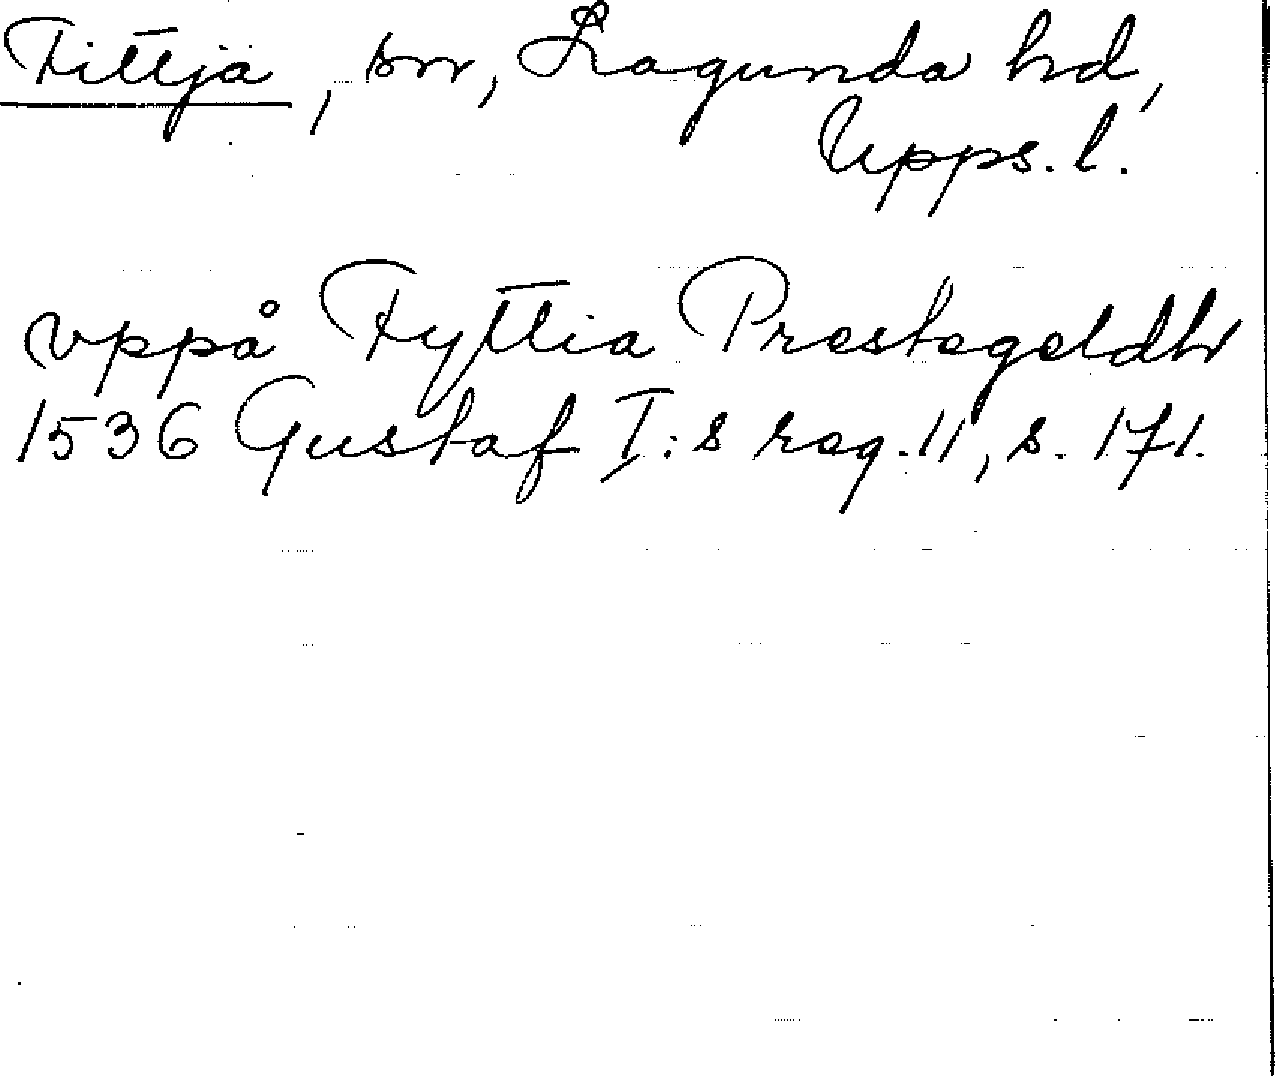 Fittjä, sn, Lagunda hd,
Upps. l.
vppå Fyttia Prestegeldh
1536 Gustaf I:s reg. 11, s. 171.